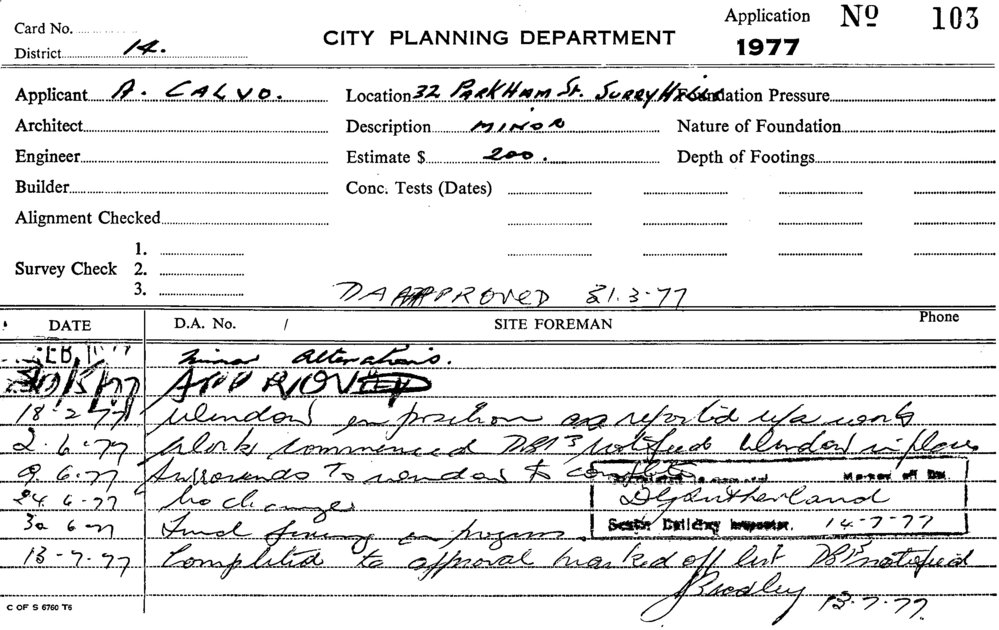 Card No.
District 14.
CITY PLANNING DEPARTMENT
Application Nº 103
1977
Applicant A. CALVO.
Location 32 PARKHAM St. SURRY HILLS
Foundation Pressure
Architect
Description MINOR
Nature of Foundation
Engineer
Estimate $ 200.
Depth of Footings
Builder
Conc. Tests (Dates)
Alignment Checked
Survey Check
1.
2.
3.
DA APPROVED 31.3.77
DATE
D.A. No. /
SITE FOREMAN
Phone
Minor alterations.
APPROVED
18-2-77 Window in position as reported works
2-6-77 Work commenced notified Window in place
9.6.77 Surrounds to window to complete
24.6-77 No change
30 6-77 in progress
D Sutherland
Senior Building Inspector. 14-7-77
13-7-77 Completed to approval marked off list notified
Bradley 13.7.77.
C OF S 6760 T6